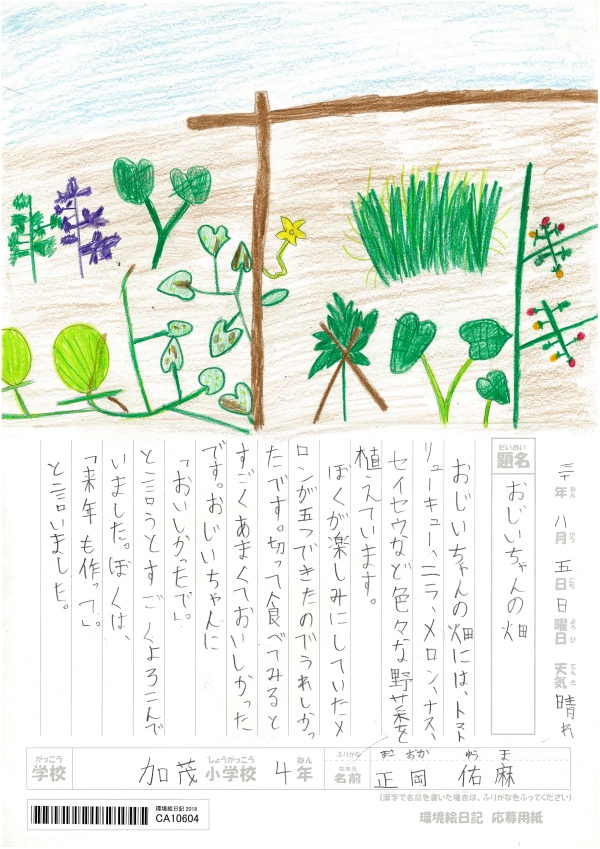 三十年 八月 五日 日曜日 天気 晴れ
ねん がつ にち ようび てんき
だいめい
題名 おじいちゃんの畑
おじいちゃんの畑には、トマト
リューキュー、ニラ、メロン、ナス、
セイセウなど色々な野菜を
植えています。
ぼくが楽しみにしていたメ
ロンが五つできたのでうれしかっ
たです。切って食べてみると
すごくあまくておいしかった
です。おじいちゃんに
「おいしかったで」。
と言うとすごくよろこんで
いました。ぼくは、
「来年も作って」。
と言いました。
がっこう しょうがっこう ねん
学校 加茂 小学校 4年
ふりがな まさ おか ゆう ま
なまえ
名前 正岡 佑麻
(漢字で名前を書いた場合は、ふりがなをふってください)
環境絵日記 応募用紙
環境絵日記 2018
CA10604